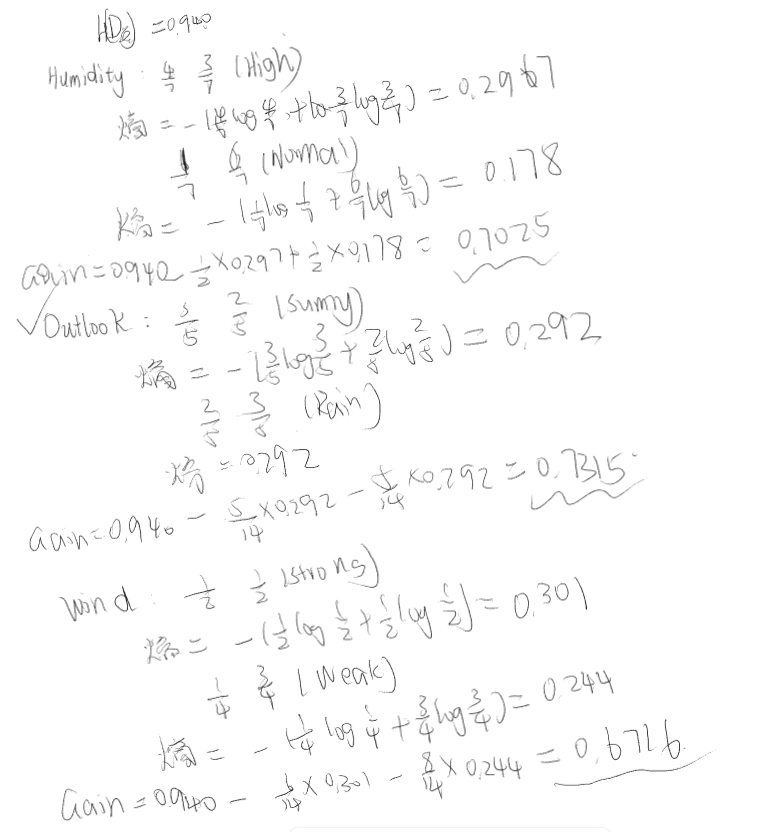 H(D) = 0.940
Humidity : 4/7 3/7 (High)
熵 = -(4/7 log 4/7 + 3/7 log 3/7) = 0.2967
1/7 6/7 (Normal)
熵 = -(1/7 log 1/7 + 6/7 log 6/7) = 0.178
Gain = 0.940 - 1/2 × 0.297 + 1/2 × 0.178 = 0.7025
✓ Outlook : 3/5 2/5 (Sunny)
熵 = -(3/5 log 3/5 + 2/5 log 2/5) = 0.292
2/5 3/5 (Rain)
熵 = 0.292
Gain = 0.940 - 5/14 × 0.292 - 5/14 × 0.292 = 0.7315
Wind : 1/2 1/2 (Strong)
熵 = -(1/2 log 1/2 + 1/2 log 1/2) = 0.301
1/4 3/4 (Weak)
熵 = -(1/4 log 1/4 + 3/4 log 3/4) = 0.244
Gain = 0.940 - 6/14 × 0.301 - 8/14 × 0.244 = 0.6716